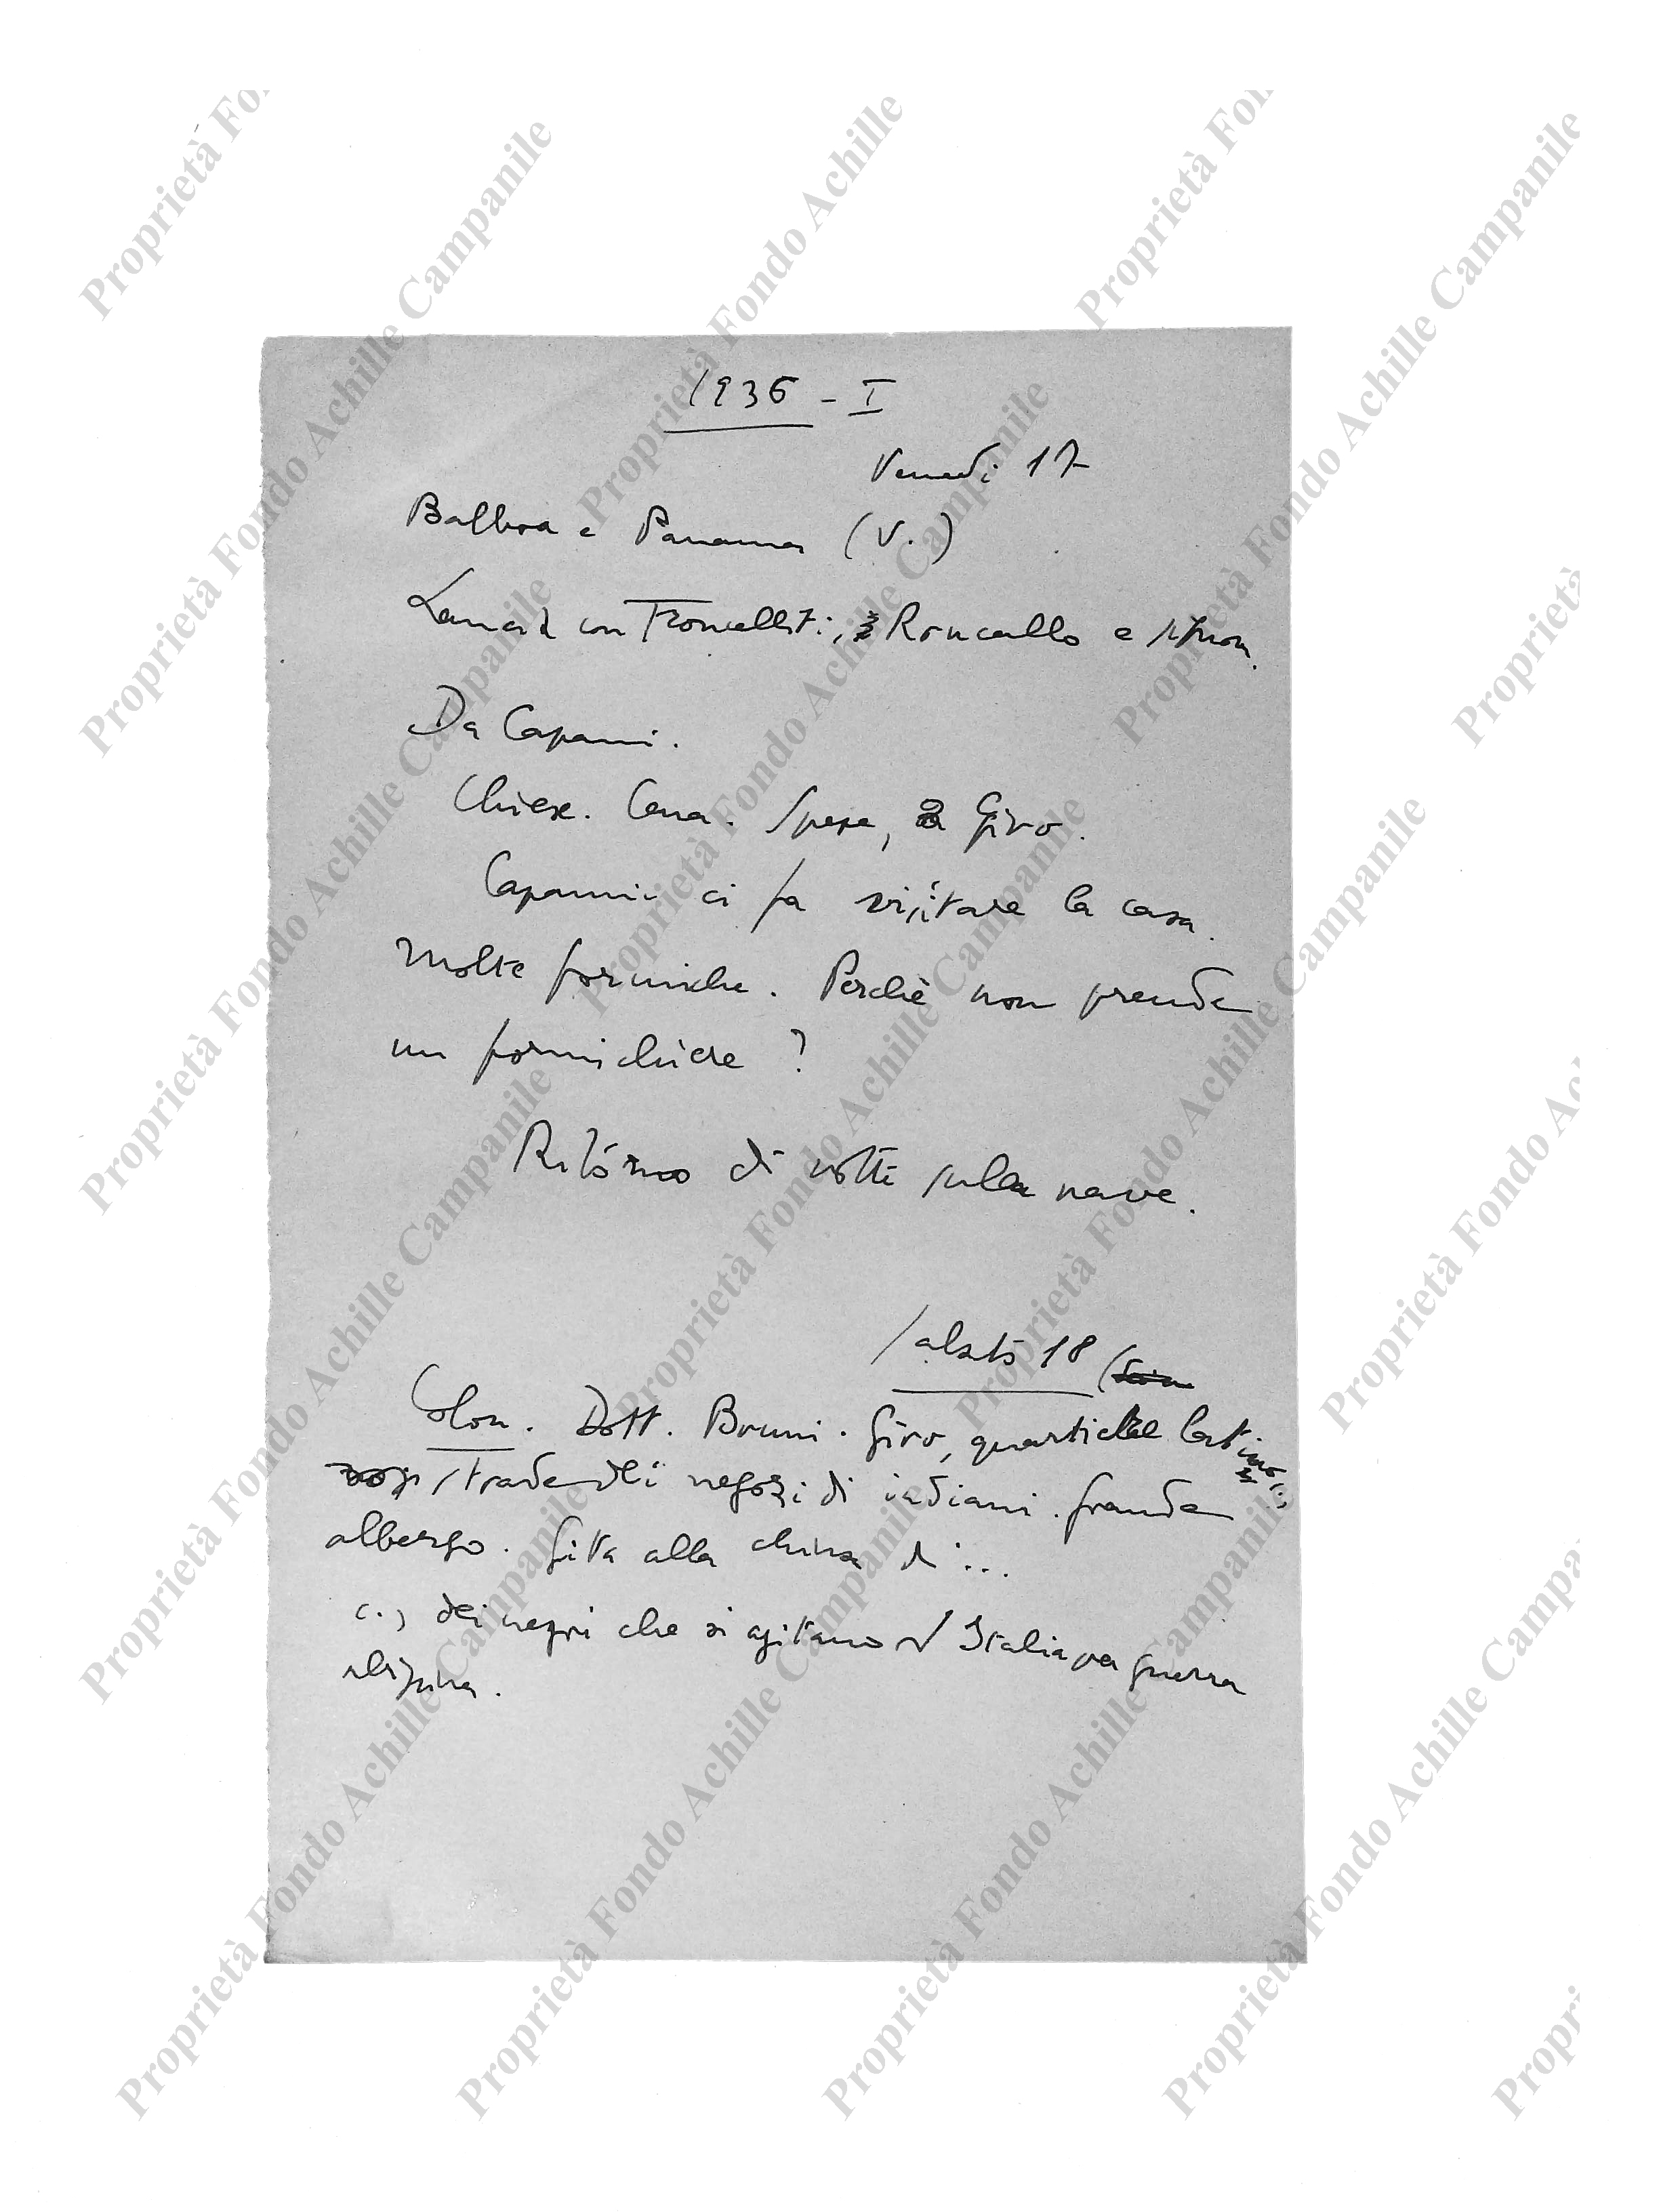 1936 - I
Venerdi 17
Balboa e Panama (V.)
con Troncelliti, Roncallo e
Da Capanni.
Chiese. Cena. Spese, Giro.
Capanni ci fa visitare la casa.
Molte formiche. Perchè non prende
un formichiere?
Ritorno di notte sulla nave.
Sabato 18
Colon. Dott. Bruni. Giro, quartiere latino
strade dei negozi di indiani. grande
albergo. Gita alla chiesa di ...
dei negri che si agitano Italia per guerra
etiopica.
Proprietà Fondo Achille Campanile